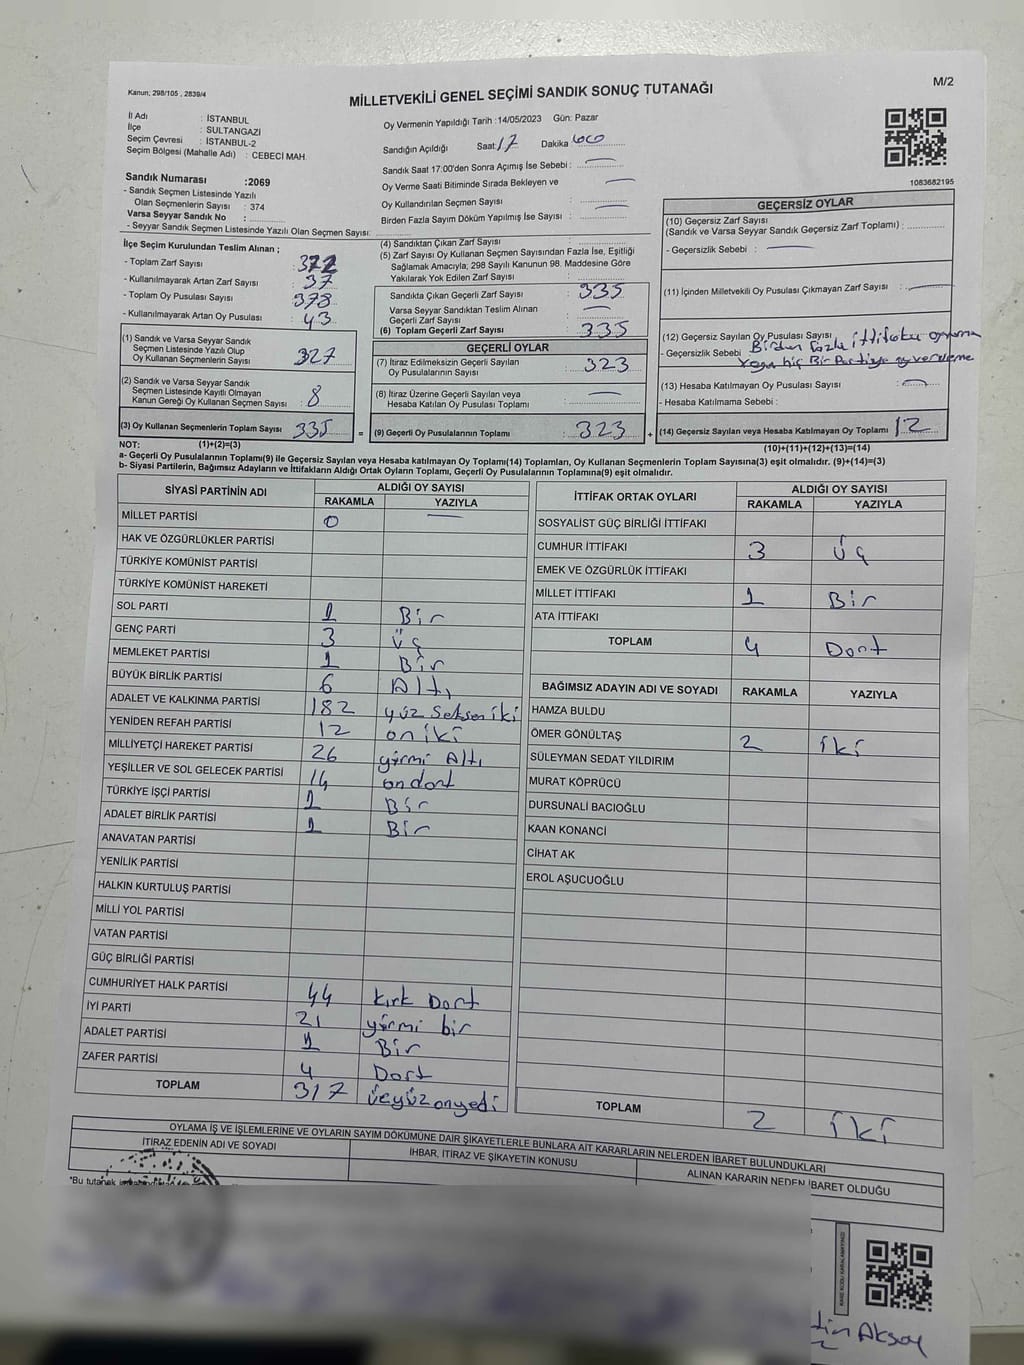 Kanun; 298/105 , 2839/4
MİLLETVEKİLİ GENEL SEÇİMİ SANDIK SONUÇ TUTANAĞI
M/2
İl Adı : İSTANBUL
İlçe : SULTANGAZİ
Seçim Çevresi : İSTANBUL-2
Seçim Bölgesi (Mahalle Adı) : CEBECİ MAH.
Oy Vermenin Yapıldığı Tarih :14/05/2023 Gün: Pazar
Sandığın Açıldığı Saat: 17 Dakika
Sandık Saat 17:00'den Sonra Açımış İse Sebebi : —
Oy Verme Saati Bitiminde Sırada Bekleyen ve —
Oy Kullandırılan Seçmen Sayısı :
Birden Fazla Sayım Döküm Yapılmış İse Sayısı : —
1083682195
Sandık Numarası :2069
- Sandık Seçmen Listesinde Yazılı
Olan Seçmenlerin Sayısı : 374
Varsa Seyyar Sandık No :
- Seyyar Sandık Seçmen Listesinde Yazılı Olan Seçmen Sayısı:
İlçe Seçim Kurulundan Teslim Alınan ;
- Toplam Zarf Sayısı : 372
- Kullanılmayarak Artan Zarf Sayısı : 37
- Toplam Oy Pusulası Sayısı : 378
- Kullanılmayarak Artan Oy Pusulası : 43
(1) Sandık ve Varsa Seyyar Sandık
Seçmen Listesinde Yazılı Olup
Oy Kullanan Seçmenlerin Sayısı : 327
(2) Sandık ve Varsa Seyyar Sandık
Seçmen Listesinde Kayıtlı Olmayan
Kanun Gereği Oy Kullanan Seçmen Sayısı : 8
(3) Oy Kullanan Seçmenlerin Toplam Sayısı : 335
(4) Sandıktan Çıkan Zarf Sayısı :
(5) Zarf Sayısı Oy Kullanan Seçmen Sayısından Fazla İse, Eşitliği
Sağlamak Amacıyla, 298 Sayılı Kanunun 98. Maddesine Göre
Yakılarak Yok Edilen Zarf Sayısı :
Sandıkta Çıkan Geçerli Zarf Sayısı : 335
Varsa Seyyar Sandıktan Teslim Alınan
Geçerli Zarf Sayısı : —
(6) Toplam Geçerli Zarf Sayısı : 335
GEÇERLİ OYLAR
(7) İtiraz Edilmeksizin Geçerli Sayılan
Oy Pusulalarının Sayısı : 323
(8) İtiraz Üzerine Geçerli Sayılan veya
Hesaba Katılan Oy Pusulası Toplamı : —
= (9) Geçerli Oy Pusulalarının Toplamı : 323 +
GEÇERSİZ OYLAR
(10) Geçersiz Zarf Sayısı
(Sandık ve Varsa Seyyar Sandık Geçersiz Zarf Toplamı) :
- Geçersizlik Sebebi : —
(11) İçinden Milletvekili Oy Pusulası Çıkmayan Zarf Sayısı : —
(12) Geçersiz Sayılan Oy Pusulası Sayısı
- Geçersizlik Sebebi Birden fazla ittifaka
veya hiç Bir Partiye oy vermeme
(13) Hesaba Katılmayan Oy Pusulası Sayısı : —
- Hesaba Katılmama Sebebi :
(14) Geçersiz Sayılan veya Hesaba Katılmayan Oy Toplamı : 12
NOT: (1)+(2)=(3)
(10)+(11)+(12)+(13)=(14)
a- Geçerli Oy Pusulalarının Toplamı(9) ile Geçersiz Sayılan veya Hesaba katılmayan Oy Toplamı(14) Toplamları, Oy Kullanan Seçmenlerin Toplam Sayısına(3) eşit olmalıdır. (9)+(14)=(3)
b- Siyasi Partilerin, Bağımsız Adayların ve İttifakların Aldığı Ortak Oyların Toplamı, Geçerli Oy Pusulalarının Toplamına(9) eşit olmalıdır.
SİYASİ PARTİNİN ADI ALDIĞI OY SAYISI
RAKAMLA YAZIYLA
MİLLET PARTİSİ 0 —
HAK VE ÖZGÜRLÜKLER PARTİSİ
TÜRKİYE KOMÜNİST PARTİSİ
TÜRKİYE KOMÜNİST HAREKETİ
SOL PARTİ 1 Bir
GENÇ PARTİ 3 üç
MEMLEKET PARTİSİ 1 Bir
BÜYÜK BİRLİK PARTİSİ 6 Altı
ADALET VE KALKINMA PARTİSİ 182 yüz Seksen iki
YENİDEN REFAH PARTİSİ 12 on iki
MİLLİYETÇİ HAREKET PARTİSİ 26 yirmi Altı
YEŞİLLER VE SOL GELECEK PARTİSİ 14 on dort
TÜRKİYE İŞÇİ PARTİSİ 1 Bir
ADALET BİRLİK PARTİSİ 1 Bir
ANAVATAN PARTİSİ
YENİLİK PARTİSİ
HALKIN KURTULUŞ PARTİSİ
MİLLİ YOL PARTİSİ
VATAN PARTİSİ
GÜÇ BİRLİĞİ PARTİSİ
CUMHURİYET HALK PARTİSİ 44 kırk Dort
İYİ PARTİ 21 yirmi bir
ADALET PARTİSİ 1 Bir
ZAFER PARTİSİ 4 Dort
TOPLAM 317 üçyüzonyedi
İTTİFAK ORTAK OYLARI ALDIĞI OY SAYISI
RAKAMLA YAZIYLA
SOSYALİST GÜÇ BİRLİĞİ İTTİFAKI
CUMHUR İTTİFAKI 3 üç
EMEK VE ÖZGÜRLÜK İTTİFAKI
MİLLET İTTİFAKI 1 Bir
ATA İTTİFAKI
TOPLAM 4 Dort
BAĞIMSIZ ADAYIN ADI VE SOYADI RAKAMLA YAZIYLA
HAMZA BULDU
ÖMER GÖNÜLTAŞ 2 iki
SÜLEYMAN SEDAT YILDIRIM
MURAT KÖPRÜCÜ
DURSUNALİ BACIOĞLU
KAAN KONANCİ
CİHAT AK
EROL AŞUCUOĞLU
TOPLAM 2 iki
OYLAMA İŞ VE İŞLEMLERİNE VE OYLARIN SAYIM DÖKÜMÜNE DAİR ŞİKAYETLERLE BUNLARA AİT KARARLARIN NELERDEN İBARET BULUNDUKLARI
İTİRAZ EDENİN ADI VE SOYADI İHBAR, İTİRAZ VE ŞİKAYETİN KONUSU ALINAN KARARIN NEDEN İBARET OLDUĞU
*Bu tutanak
KARE KODU KARALAMAYINIZ!
tin Aksoy